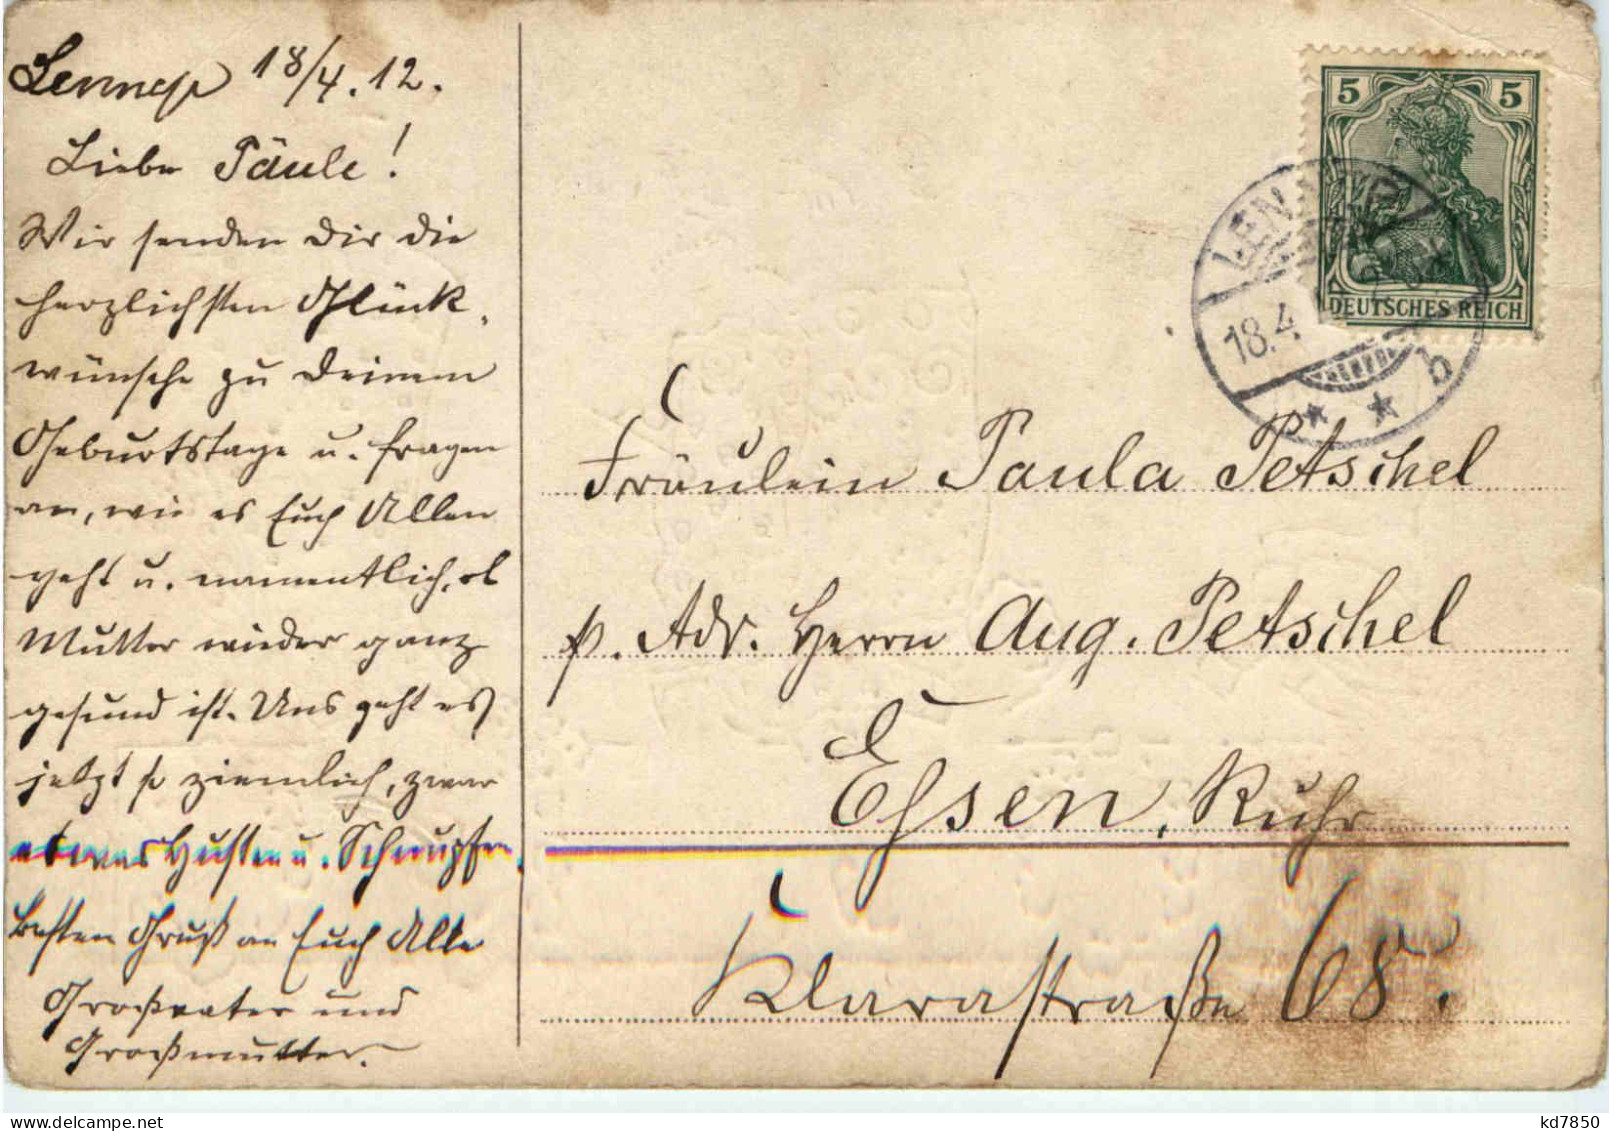 Lennep 18/4.12.
Liebe Päule!
Wir senden Dir die
herzlichsten Glück-
wünsche zu Deinem
Geburtstage u. fragen
an, wie es Euch Allen
geht u. namentlich, ob
Mutter wieder ganz
gesund ist. Uns geht es
jetzt so ziemlich, zwar
etwas Husten u. Schnupfen.
Besten Gruß an Euch Alle
Großvater und
Großmutter.
5 5
DEUTSCHES REICH
LENNEP
18.4
b
Fräulein Paula Petschel
p. Adr. Herrn Aug. Petschel
Essen, Ruhr
Klarastraße 68.
kd7850